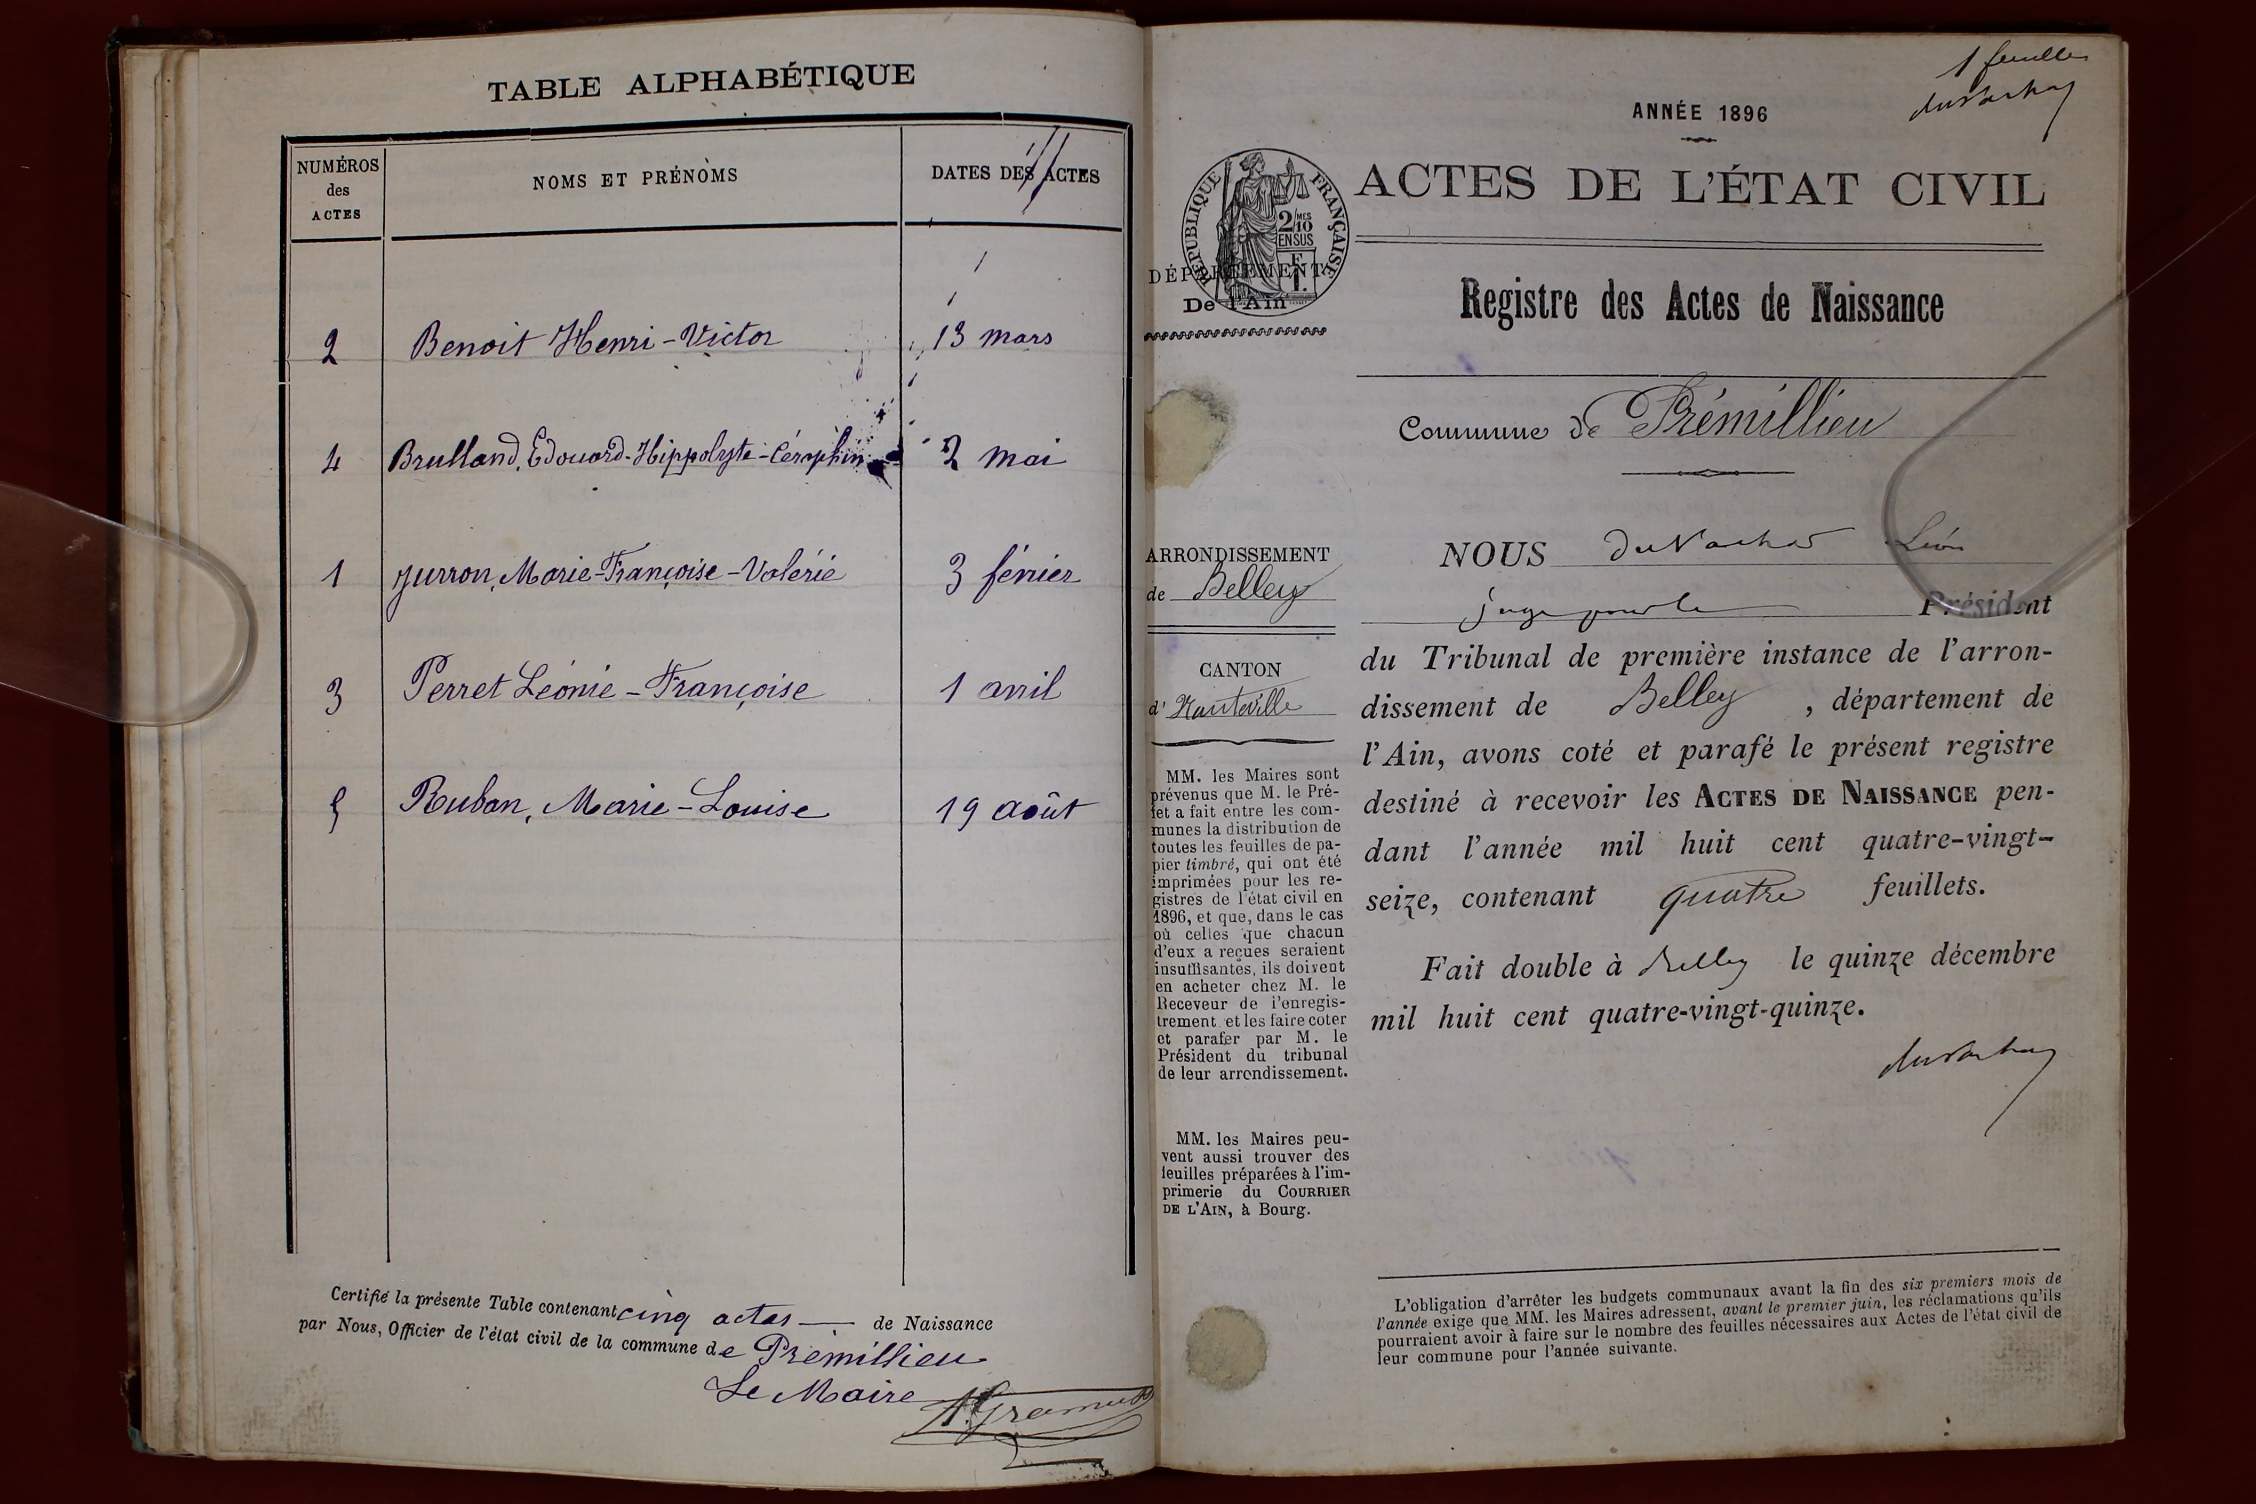 TABLE ALPHABÉTIQUE
NUMÉROS
des
ACTES
NOMS ET PRÉNOMS
DATES DES ACTES
2 Benoit Henri-Victor 13 mars
4 Brulland, Edouard-Hippolyte-Céraphin 2 mai
1 Jurron, Marie-Françoise-Valérie 3 février
3 Perret Léonie-Françoise 1 avril
5 Ruban, Marie-Louise 19 août
Certifié la présente Table contenant cinq actes de Naissance
par Nous, Officier de l'état civil de la commune de Prémillieu
Le Maire
1 feuillet
ANNÉE 1896
RÉPUBLIQUE FRANÇAISE
2/10
MES
EN SUS
ACTES DE L'ÉTAT CIVIL
DÉPARTEMENT
De l'Ain
Registre des Actes de Naissance
Commune de Prémillieu
ARRONDISSEMENT
de Belley
CANTON
d' Hauteville
MM. les Maires sont
prévenus que M. le Pré-
fet a fait entre les com-
munes la distribution de
toutes les feuilles de pa-
pier timbré, qui ont été
imprimées pour les re-
gistres de l'état civil en
1896, et que, dans le cas
où celles que chacun
d'eux a reçues seraient
insuffisantes, ils doivent
en acheter chez M. le
Receveur de l'enregis-
trement et les faire coter
et parafer par M. le
Président du tribunal
de leur arrondissement.
MM. les Maires peu-
vent aussi trouver des
feuilles préparées à l'im-
primerie du COURRIER
DE L'AIN, à Bourg.
NOUS Léon
juge pour le Président
du Tribunal de première instance de l'arron-
dissement de Belley, département de
l'Ain, avons coté et parafé le présent registre
destiné à recevoir les ACTES DE NAISSANCE pen-
dant l'année mil huit cent quatre-vingt-
seize, contenant quatre feuillets.
Fait double à Belley le quinze décembre
mil huit cent quatre-vingt-quinze.
L'obligation d'arrêter les budgets communaux avant la fin des six premiers mois de
l'année exige que MM. les Maires adressent, avant le premier juin, les réclamations qu'ils
pourraient avoir à faire sur le nombre des feuilles nécessaires aux Actes de l'état civil de
leur commune pour l'année suivante.